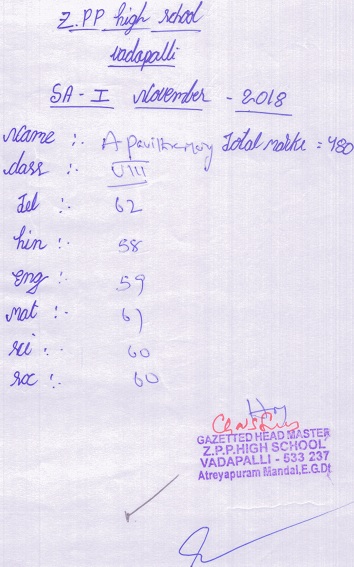 Z.PP high school
Vadapalli
SA - I November - 2018
Name :- A Total marks = 480
class :- VIII
Tel :- 62
hin :- 58
eng :- 59
mat :- 61
sci :- 60
soc :- 60
GAZETTED HEAD MASTER
Z.P.P.HIGH SCHOOL
VADAPALLI - 533 237
Atreyapuram Mandal,E.G.Dt